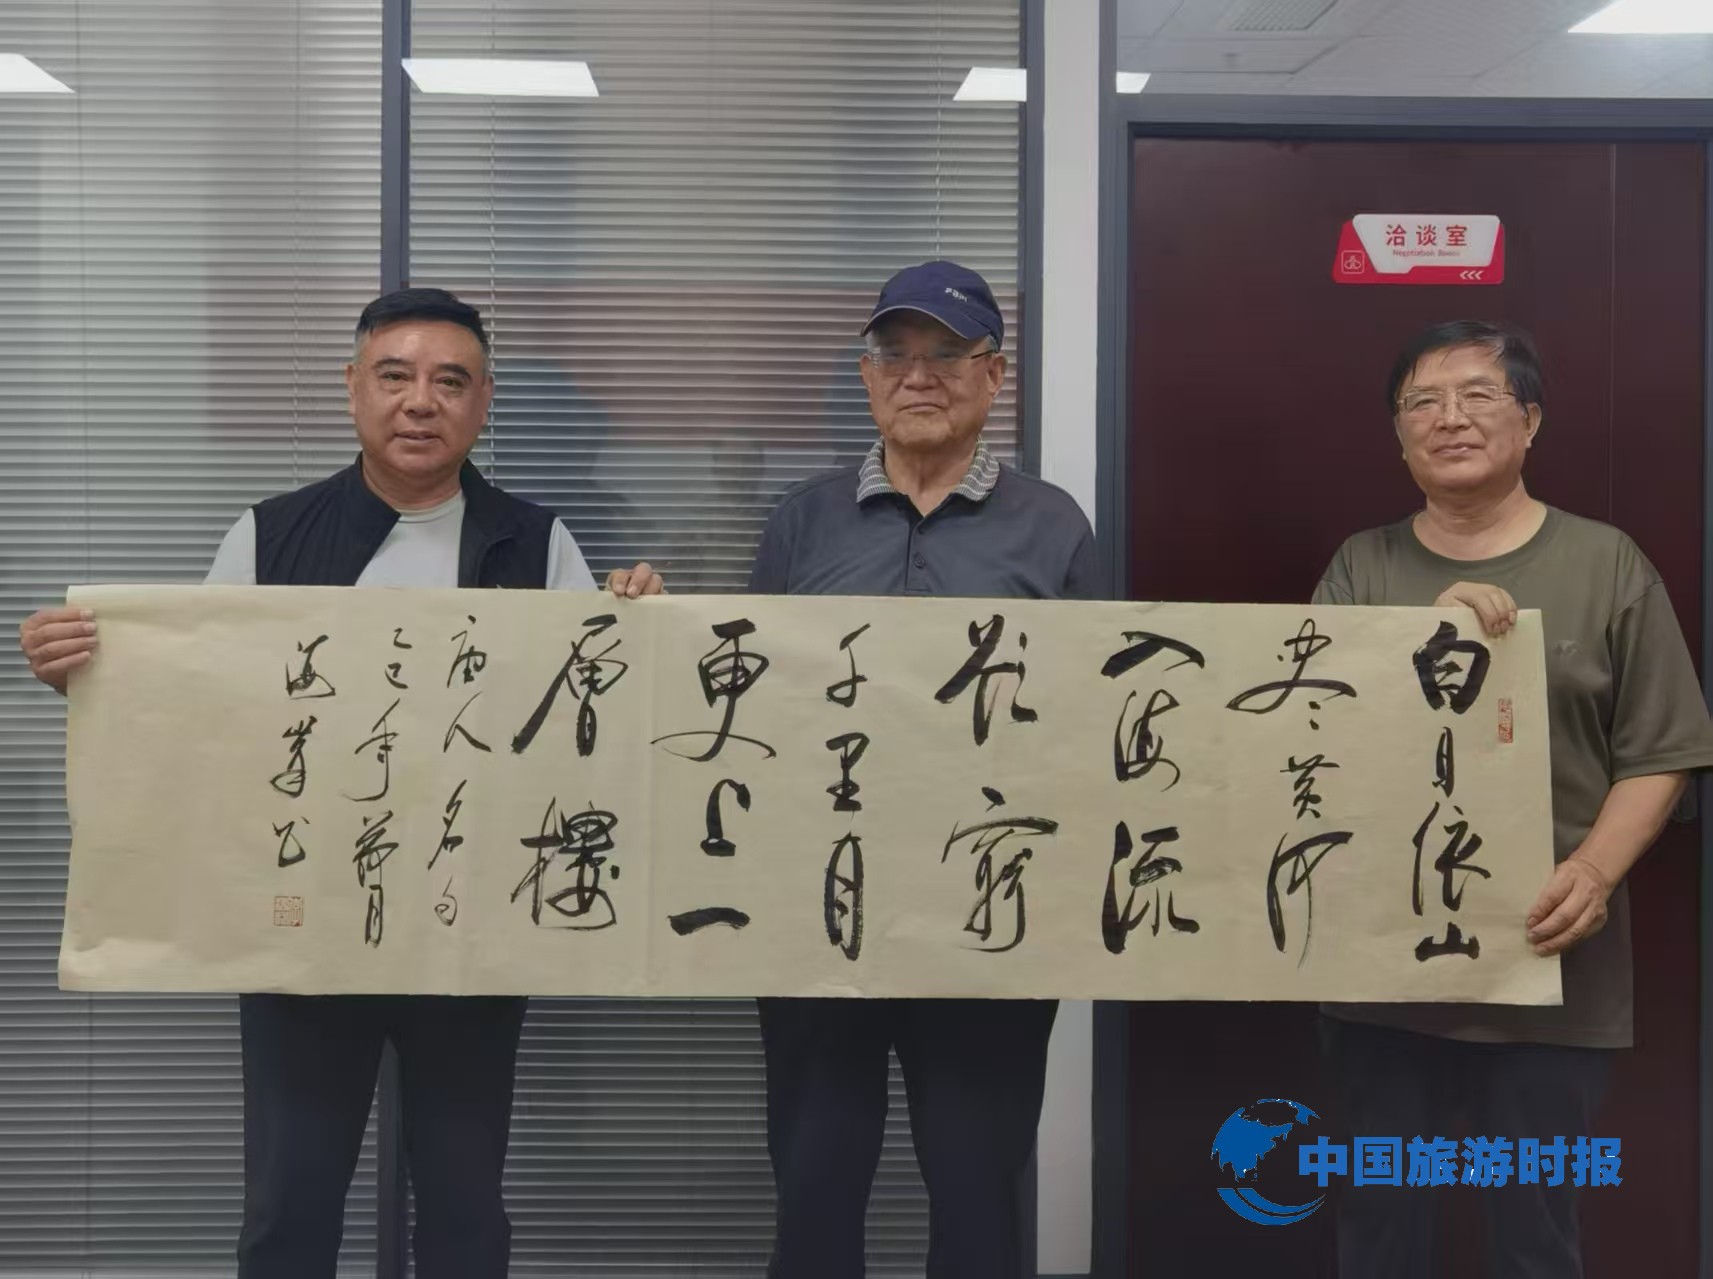 洽谈室
Negotiation Room
白日依山
尽黄河
入海流
欲窮
千里目
更上一
層樓
唐人名句
乙巳年 月
海峯书
中国旅游时报